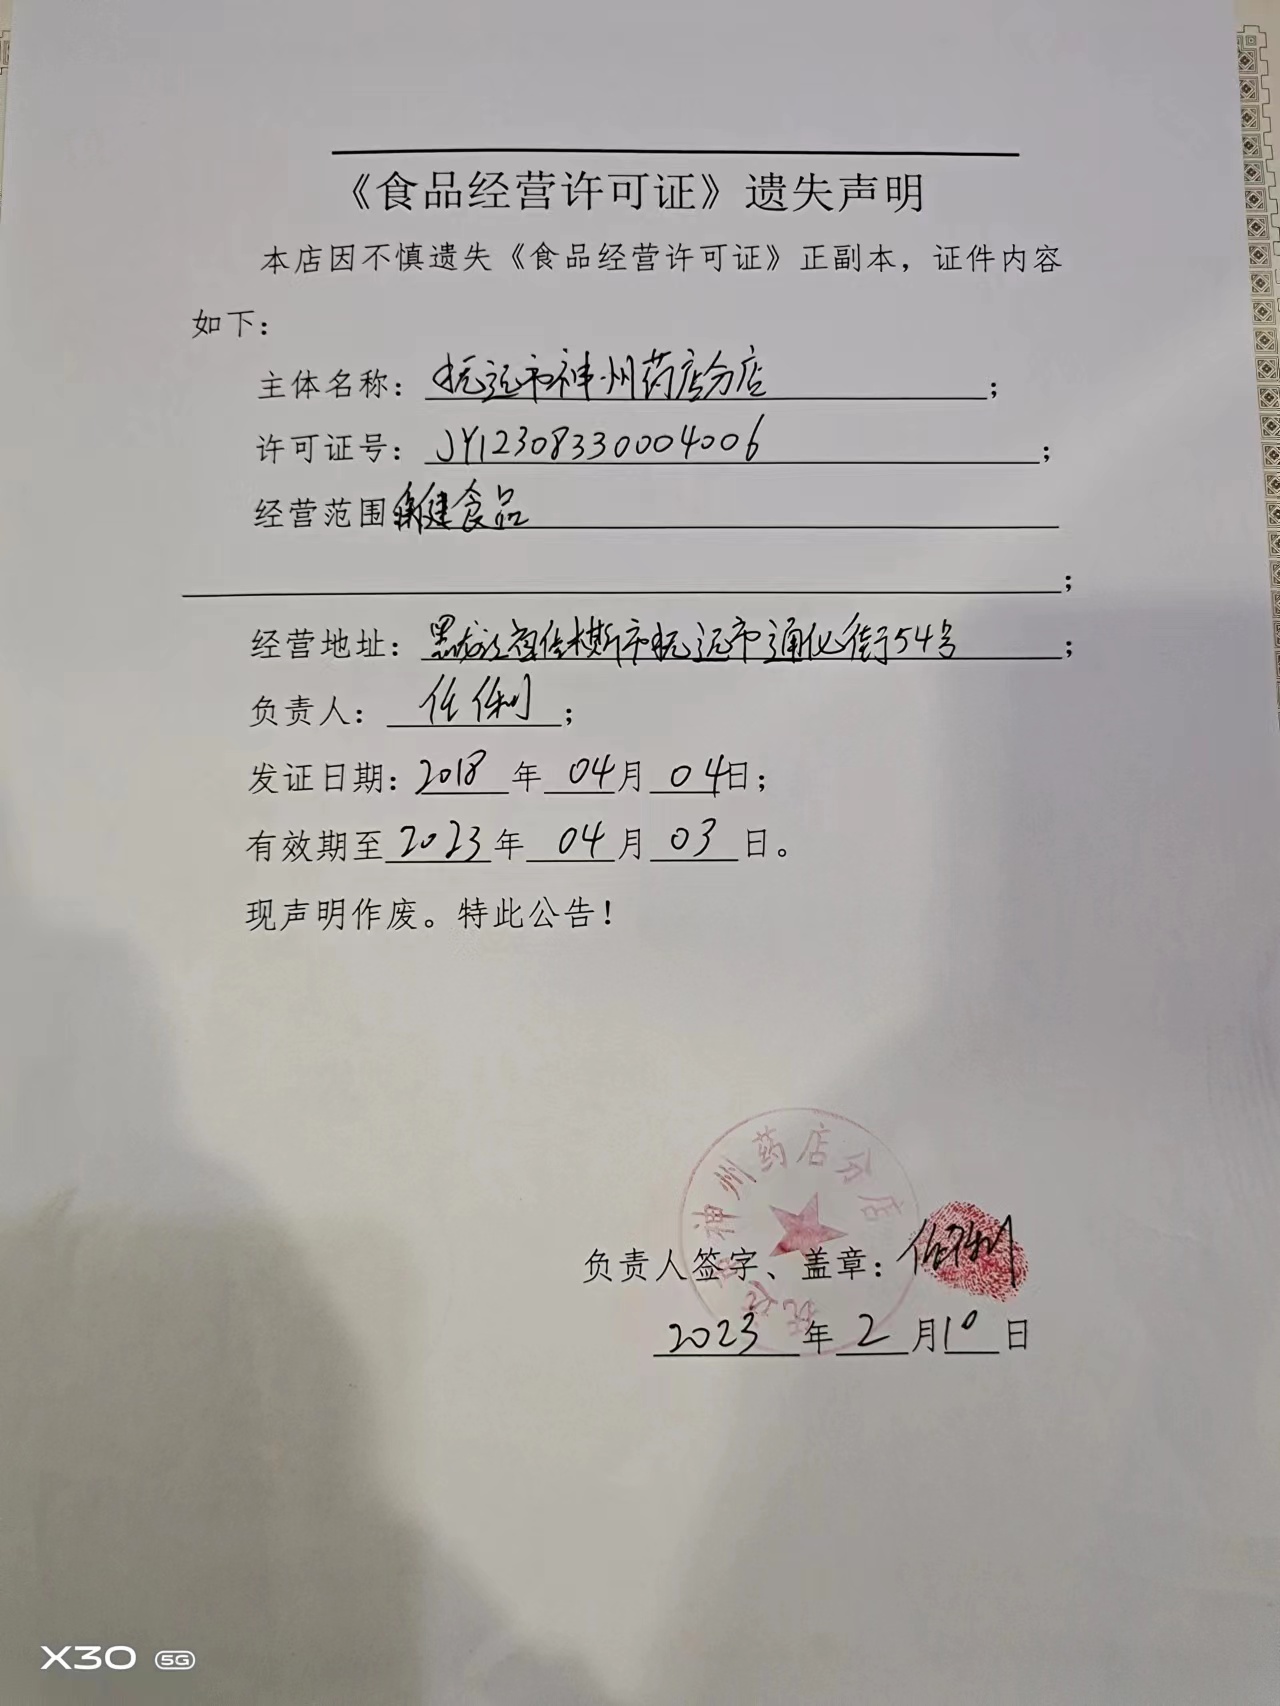 《食品经营许可证》遗失声明
本店因不慎遗失《食品经营许可证》正副本，证件内容
如下：
主体名称：抚远市神州药店分店；
许可证号：JY12308330004006；
经营范围保健食品
；
经营地址：黑龙江省佳木斯市抚远市通化街54号；
负责人：任保利；
发证日期：2018年04月04日；
有效期至2023年04月03日。
现声明作废。特此公告！
抚远市神州药店分店
负责人签字、盖章：任保利
2023年2月10日
X30 5G